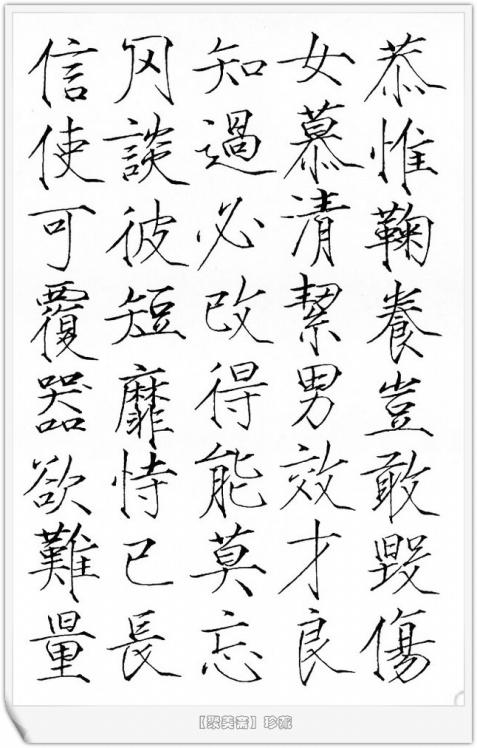 恭惟鞠養豈敢毀傷
女慕清絜男效才良
知過必改得能莫忘
罔談彼短靡恃已長
信使可覆器欲難量
【聚美斋】珍藏